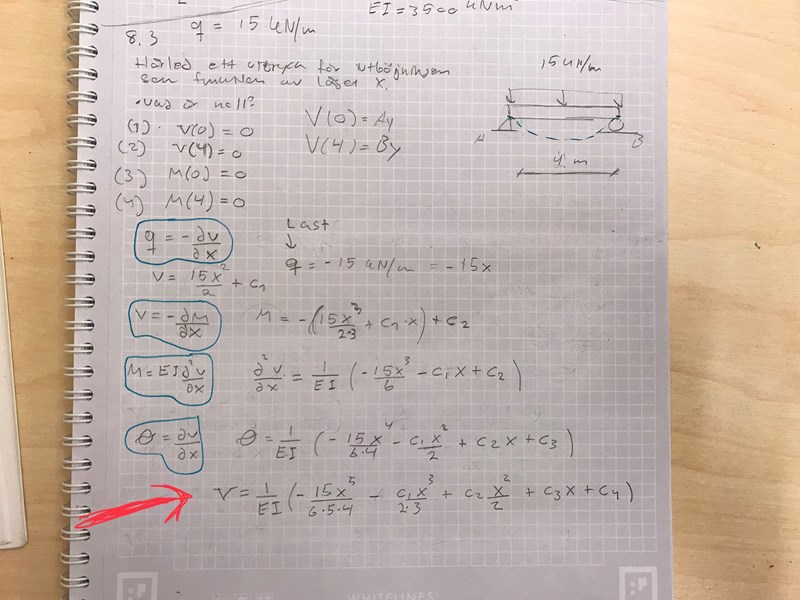 EI = 3500 kNm²
8.3 q = 15 kN/m
Härled ett uttryck för utböjningen
som funktion av läget x.
15 kN/m
• vad är noll?
(1). v(0) = 0
(2) v(4) = 0
(3) M(0) = 0
(4) M(4) = 0
V(0) = Ay
V(4) = By
A
B
4 m
q = -∂V/∂x
Last
↓
q = -15 kN/m = -15x
V = 15x²/2 + C₁
V = -∂M/∂x
M = -(15x³/2·3 + C₁·x) + C₂
M = EI ∂²v/∂x
∂²v/∂x = 1/EI (-15x³/6 - C₁x + C₂)
θ = ∂v/∂x
θ = 1/EI (-15x⁴/6·4 - C₁x²/2 + C₂x + C₃)
V = 1/EI (-15x⁵/6·5·4 - C₁x³/2·3 + C₂x²/2 + C₃x + C₄)
WHITELINES®